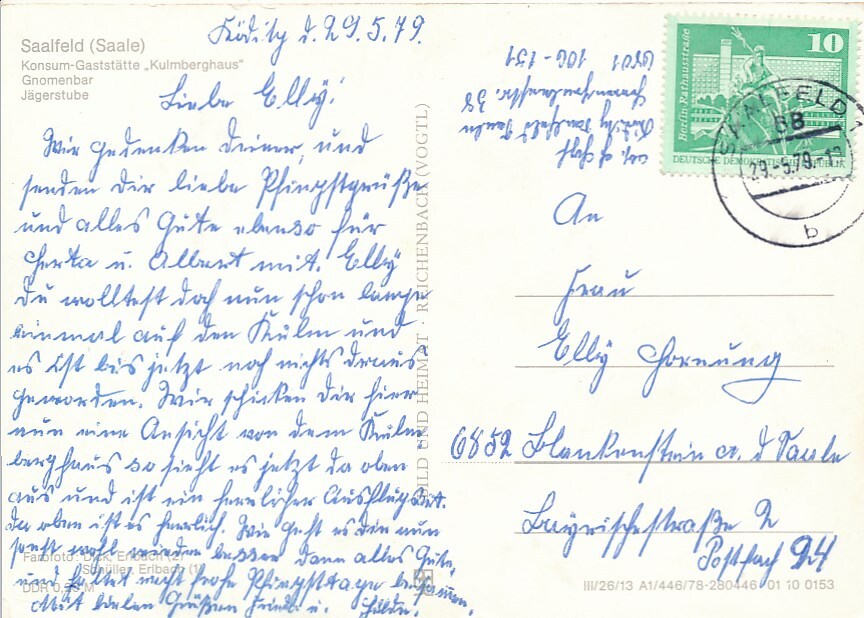 Saalfeld (Saale)
Konsum-Gaststätte „Kulmberghaus“
Gnomenbar
Jägerstube
Köditz d. 29.5.79.
Liebe Elly!
Wir gedenken Deiner, und
senden Dir liebe Pfingstgrüße
und alles Gute ebenso für
Herta u. Albert mit. Elly
Du wolltest doch nun schon lange
einmal auf den Kulm und
es ist bis jetzt noch nichts draus
geworden. Wir schicken Dir hier
nun eine Ansicht von dem Kulm
berghaus so sieht es jetzt da oben
aus und ist ein herrlicher Ausflugsort.
da oben ist es herrlich. Wie geht es Dir nun
sonst wohl wieder besser dann alles Gute,
und haltet recht frohe Pfingsttage beisammen.
Mit vielen Grüßen Frieda u. Hilde.
Farbfoto: Dick, Erlbach (2)
Schüller, Erlbach (1)
DDR 0,25 M
BILD UND HEIMAT · REICHENBACH (VOGTL)
Köditz Saalfeld Saale
38
6801 106-131
10
Berlin-Rathausstraße
DEUTSCHE DEMOKRATISCHE REPUBLIK
SAALFELD 1
68
29.-5.79.-18
b
An
Frau
Elly Hornung
6852 Blankenstein a. d Saale
Bayrischestraße 2
Postfach 24
III/26/13 A1/446/78-280446 01 10 0153